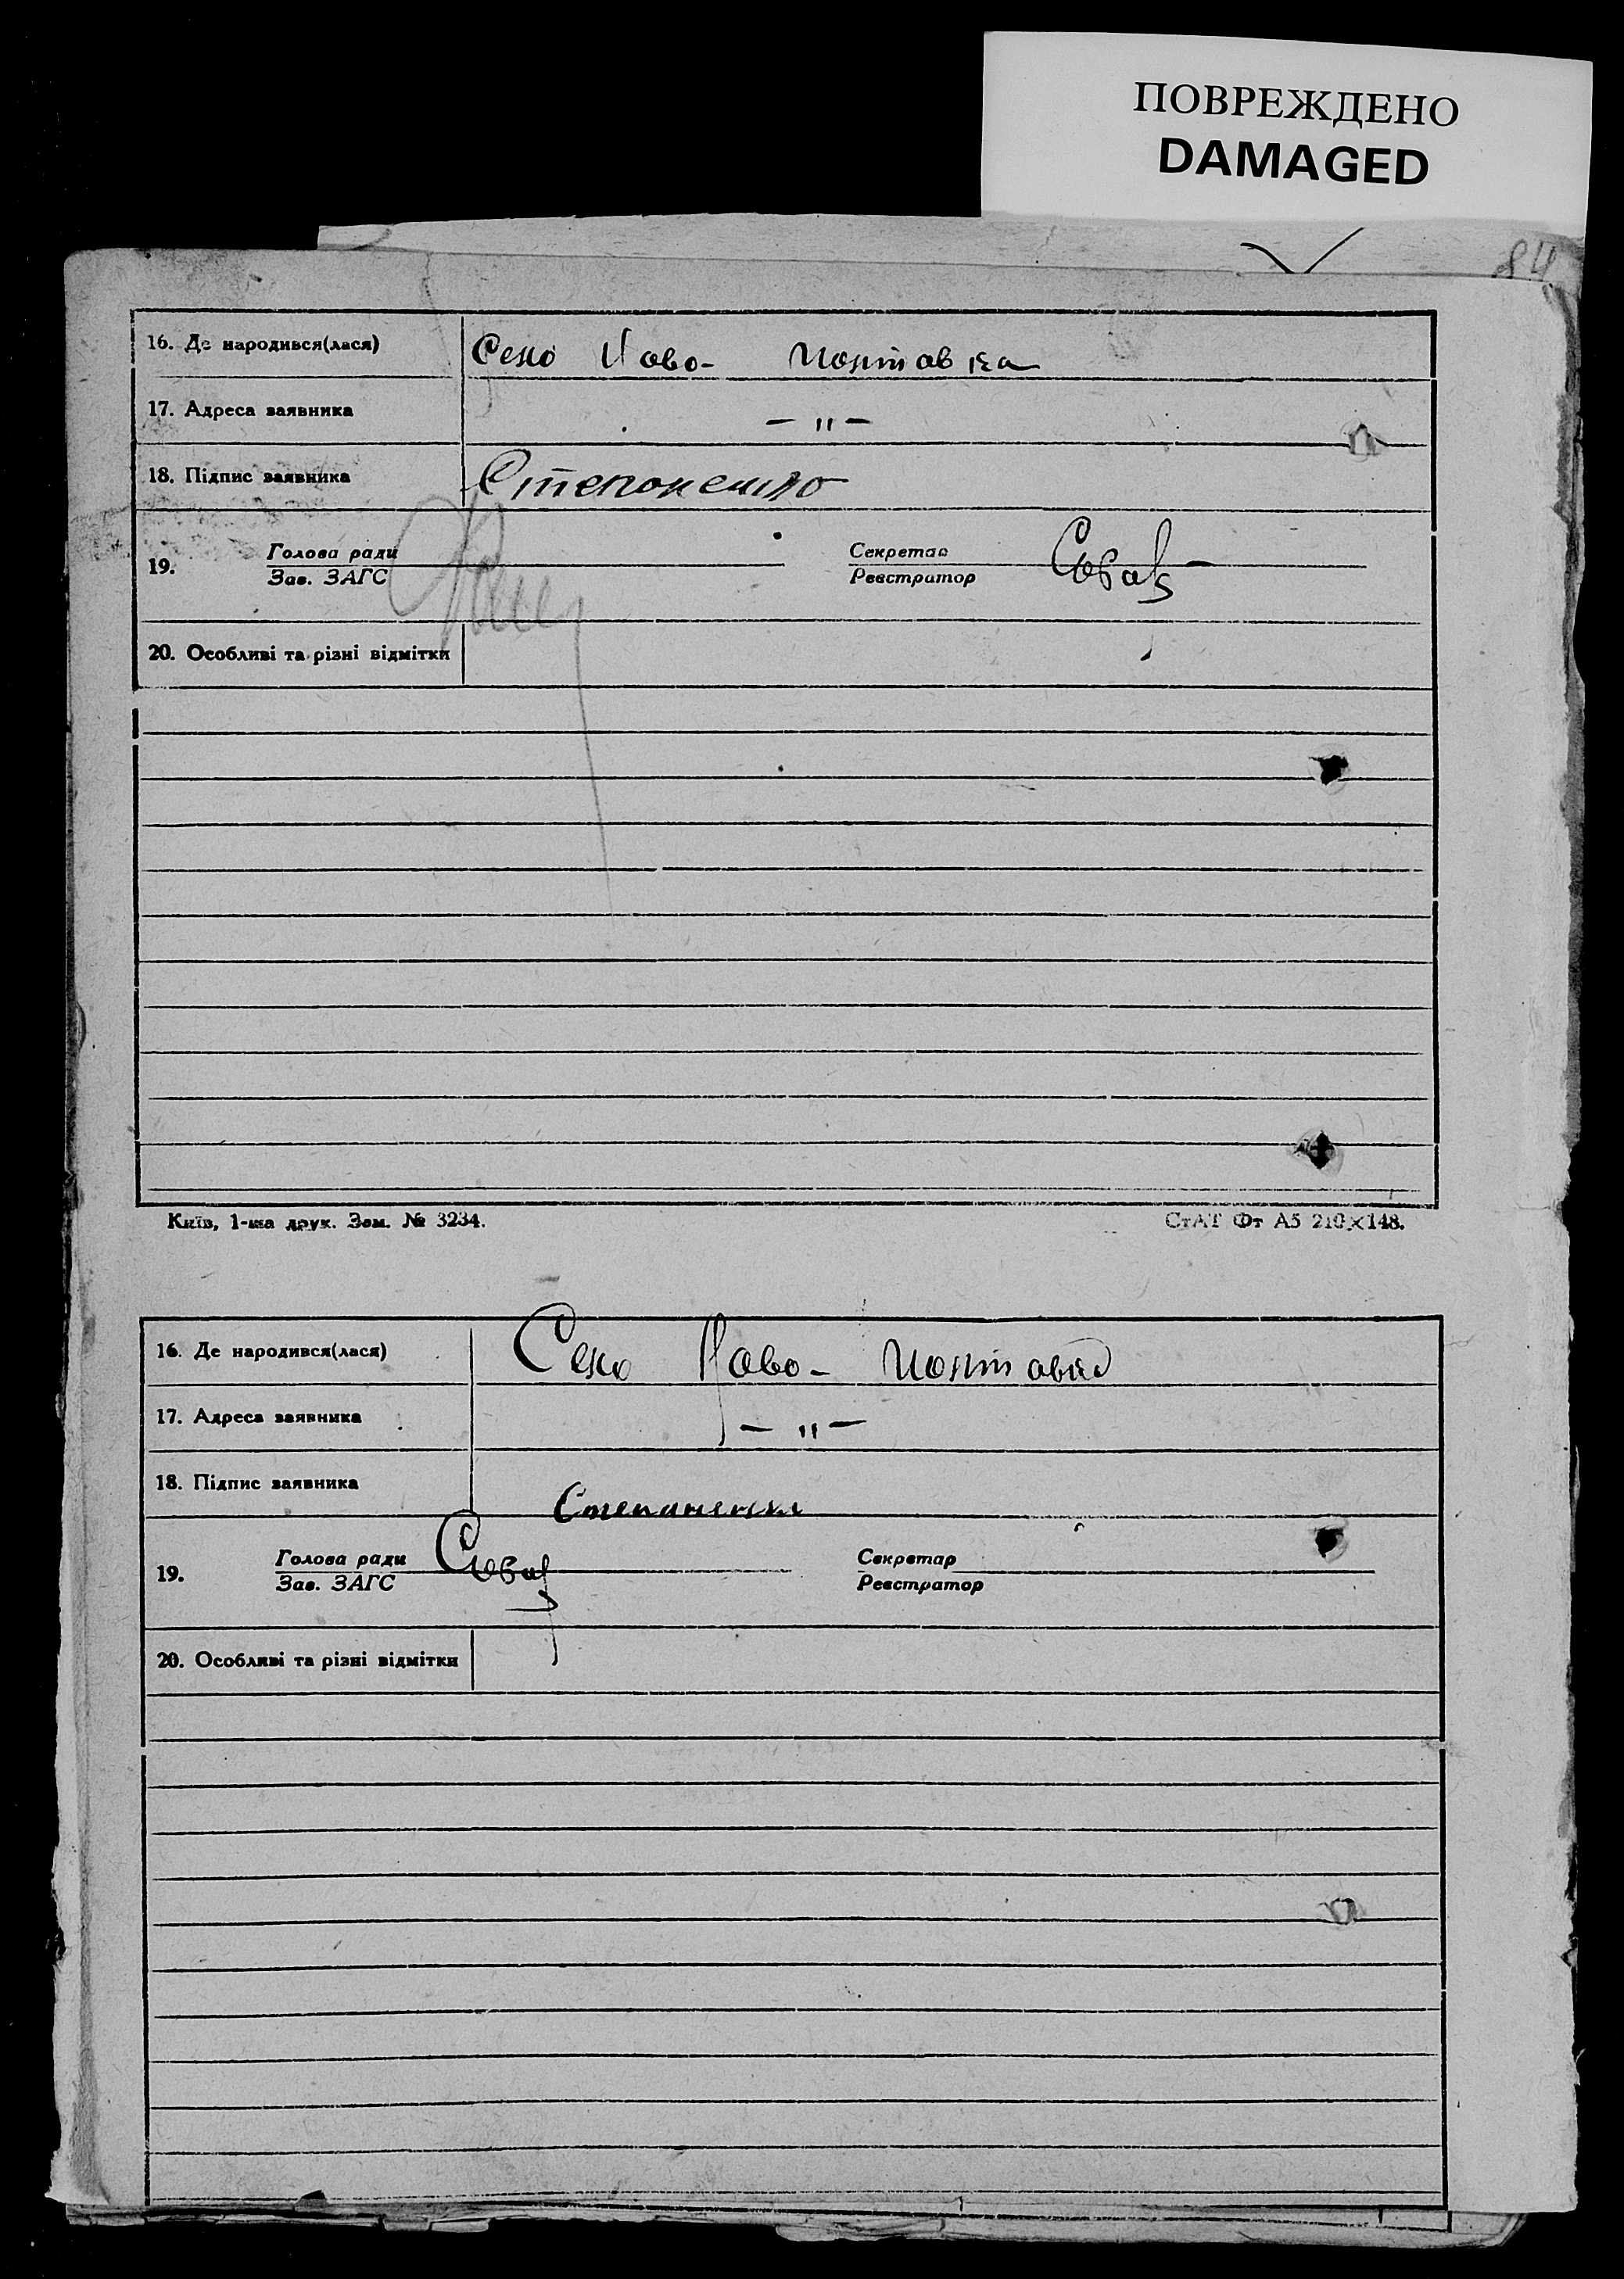 ПОВРЕЖДЕНО
DAMAGED
84
16. Де народився(лася) Село Ново-Полтавка
17. Адреса заявника — " —
18. Підпис заявника Степоненко
19. Голова ради Секретар
Зав. ЗАГС Реєстратор
20. Особливі та різні відмітки
Київ, 1-ша друк. Зам. № 3234. СтАТ Фт А5 210×148.
16. Де народився(лася) Село Ново-Полтавка
17. Адреса заявника — " —
18. Підпис заявника Степаненко
19. Голова ради Секретар
Зав. ЗАГС Реєстратор
20. Особливі та різні відмітки